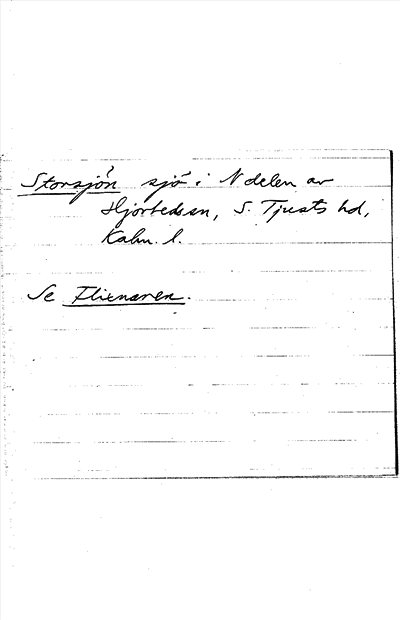 Storsjön sjö i N delen av
Hjorteds sn, S. Tjusts hd,
Kalm. l.
Se Flixnaren.